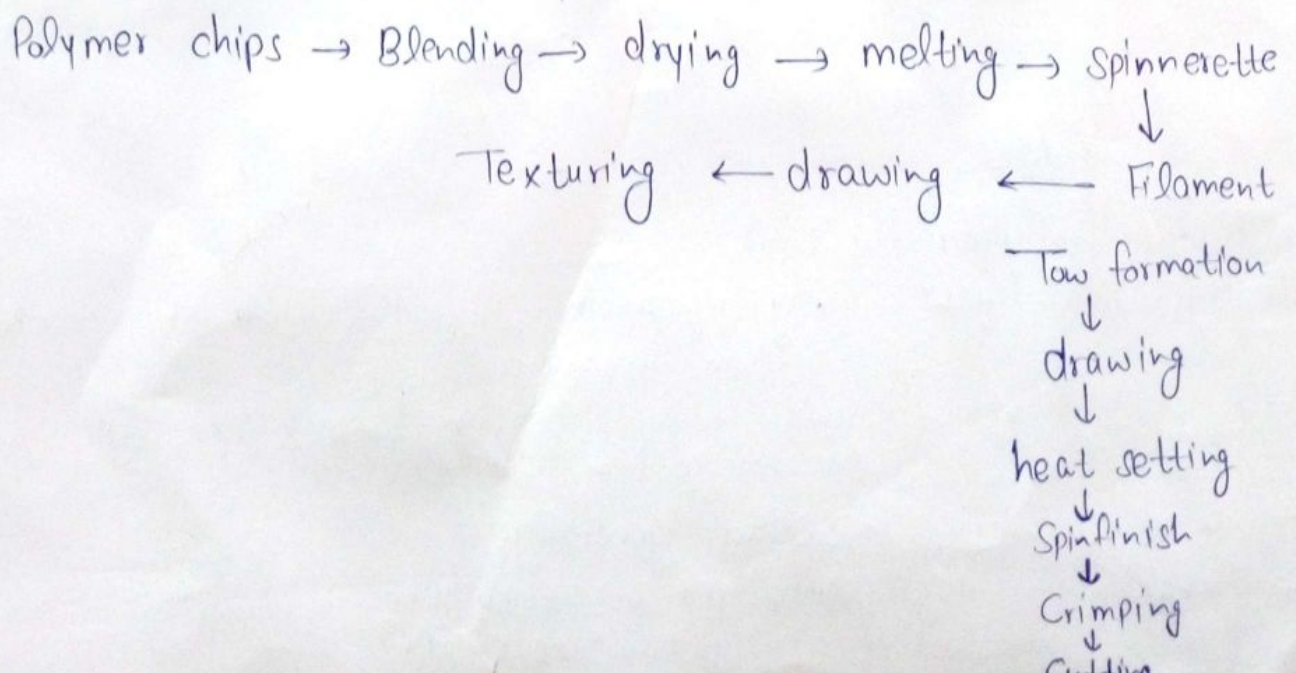 Polymer chips → Blending → drying → melting → Spinnerette
↓
Texturing ← drawing ← Filament
Tow formation
↓
drawing
↓
heat setting
↓
Spinfinish
↓
Crimping
↓